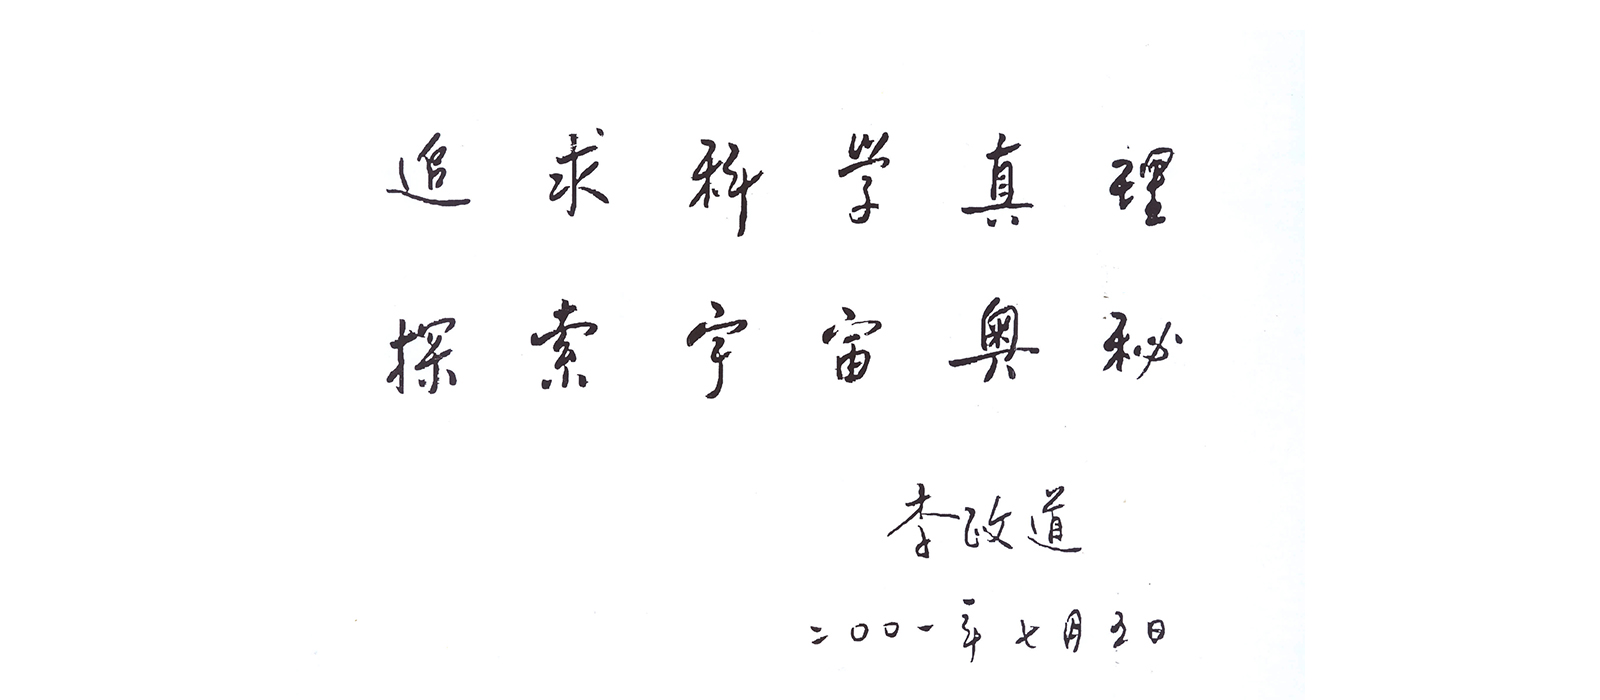 追求科学真理
探索宇宙奥秘
李政道
二〇〇一年七月五日